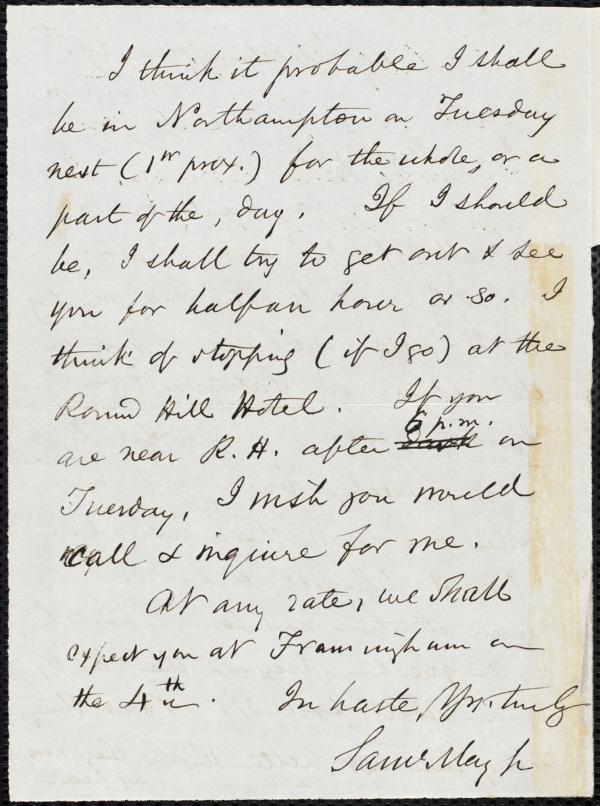 I think it probable I shall
be in Northampton on Tuesday
next (1st prox.) for the whole, or a
part of the, day. If I should
be, I shall try to get out & see
you for half an hour or so. I
think of stopping (if I go) at the
Round Hill Hotel. If you
6 p.m.
are near R. H. after dark on
Tuesday, I wish you would
call & inquire for me.
At any rate, we shall
expect you at Framingham on
the 4th. In haste, Yrs. truly
Saml May Jr